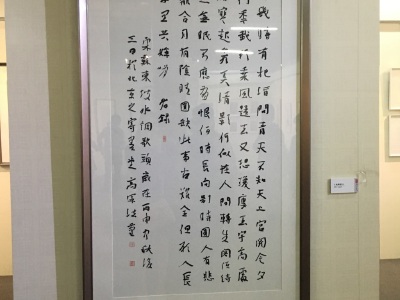 幾時有把酒問青天不知天上宮闕今夕
何年我欲乘風歸去又恐瓊樓玉宇高處
勝寒起舞弄清影何似在人間轉朱閣低綺
無眠不應有恨何時長向別時圓人有悲
離合月有陰晴圓缺此事古難全但願人長
里共嬋娟 右錄
宋蘇東坡水調歌頭歲在丙申中秋後
三日於北京之